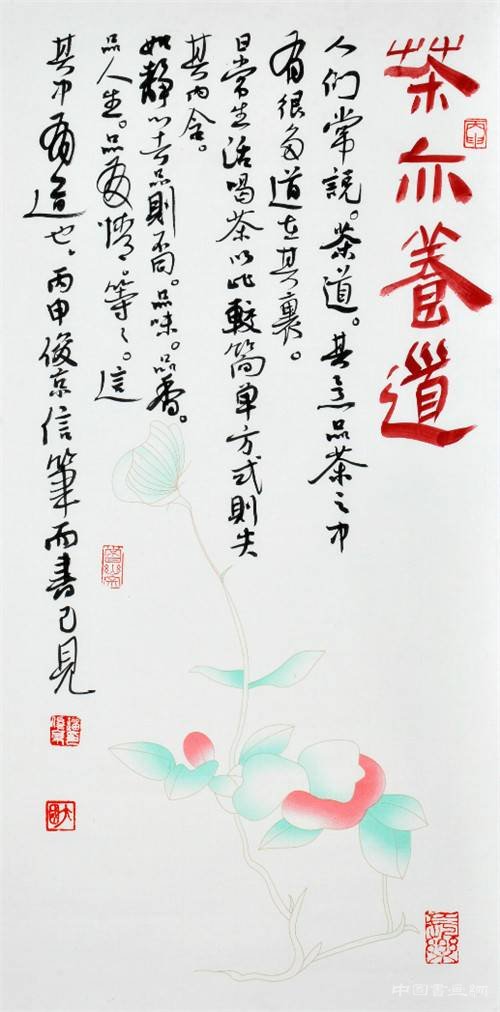 茶亦養道
人们常說。茶道。其意品茶之中
有很多道在其裏。
日常生活喝茶以比較简单方式則失
其内含。
如靜心去品則不同。品味。品香。
品人生。品友情。等々。這
其中有道也。丙申俊京信筆而書己見
中国書画網